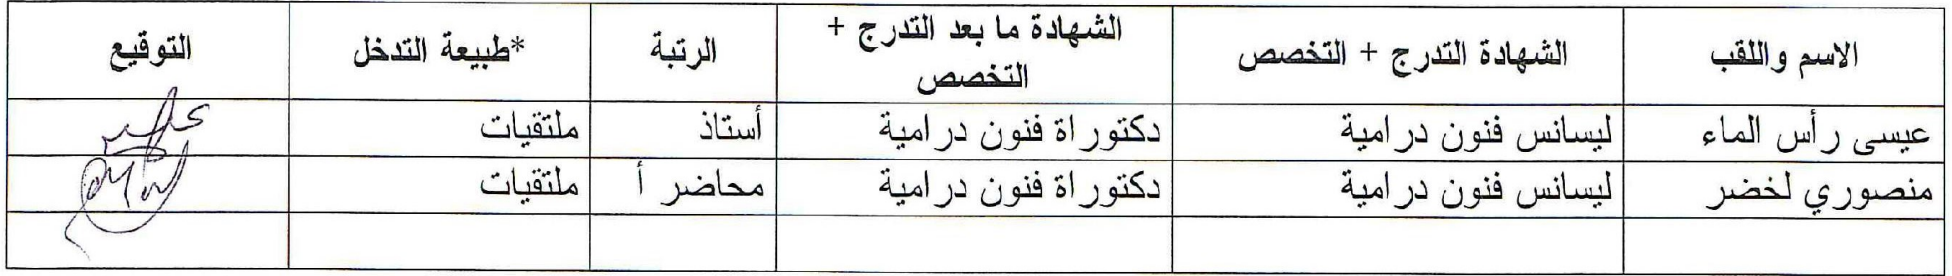 الاسم واللقب	الشهادة التدرج + التخصص	الشهادة ما بعد التدرج + التخصص	الرتبة	*طبيعة التدخل	التوقيع
عيسى رأس الماء	ليسانس فنون درامية	دكتوراة فنون درامية	أستاذ	ملتقيات
منصوري لخضر	ليسانس فنون درامية	دكتوراة فنون درامية	محاضر أ	ملتقيات